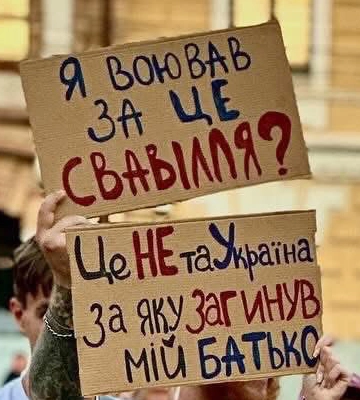 Я ВОЮВАВ
ЗА ЦЕ
СВАВІЛЛЯ?
Це НЕ та Україна
За яку ЗАГИНУВ
мій БАТЬКО